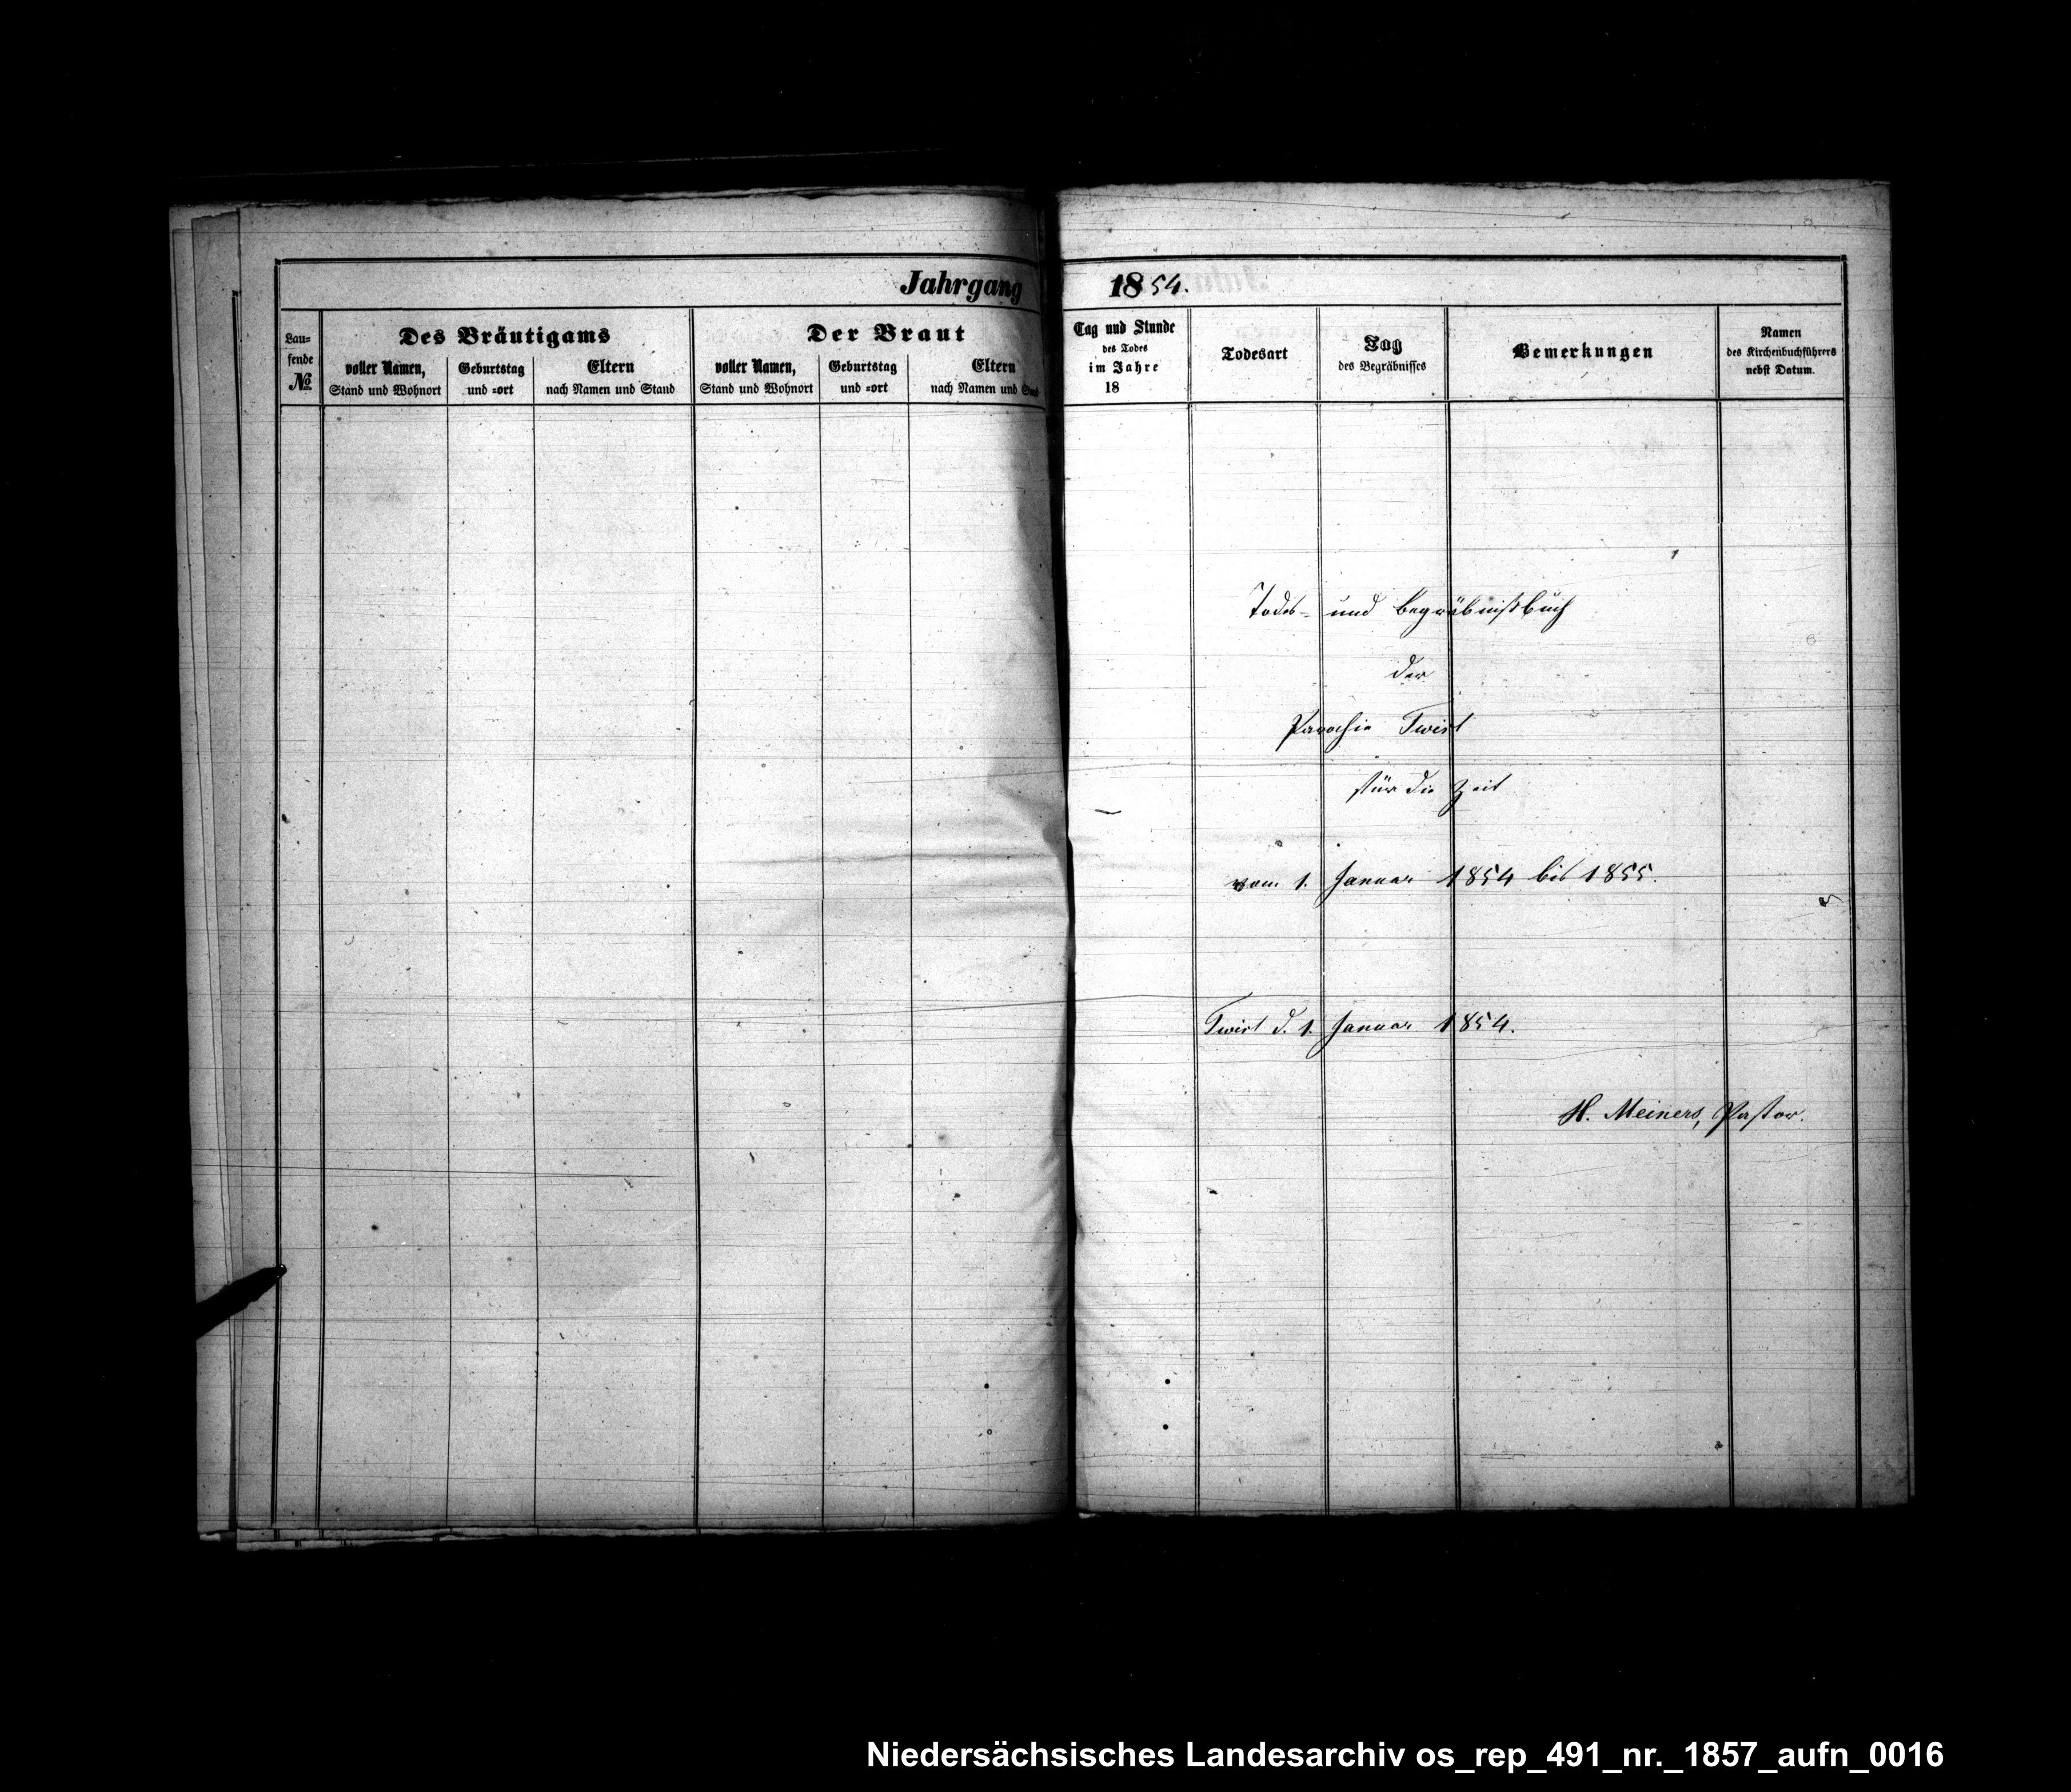 Jahrgang 1854.
Lau=
fende
№
Des Bräutigams
voller Namen,
Stand und Wohnort
Geburtstag
und =ort
Eltern
nach Namen und Stand
Der Braut
voller Namen,
Stand und Wohnort
Geburtstag
und =ort
Eltern
nach Namen und
Tag und Stunde
des Todes
im Jahre
18
Todesart
Tag
des Begräbnisses
Bemerkungen
Namen
des Kirchenbuchführers
nebst Datum.
Todes- und Begräbnißbuch
der
Parochie Twist
für die Zeit
vom 1. Januar 1854 bis 1855.
Twist d. 1. Januar 1854.
H. Meiners, Pastor.
Niedersächsisches Landesarchiv os_rep_491_nr._1857_aufn_0016